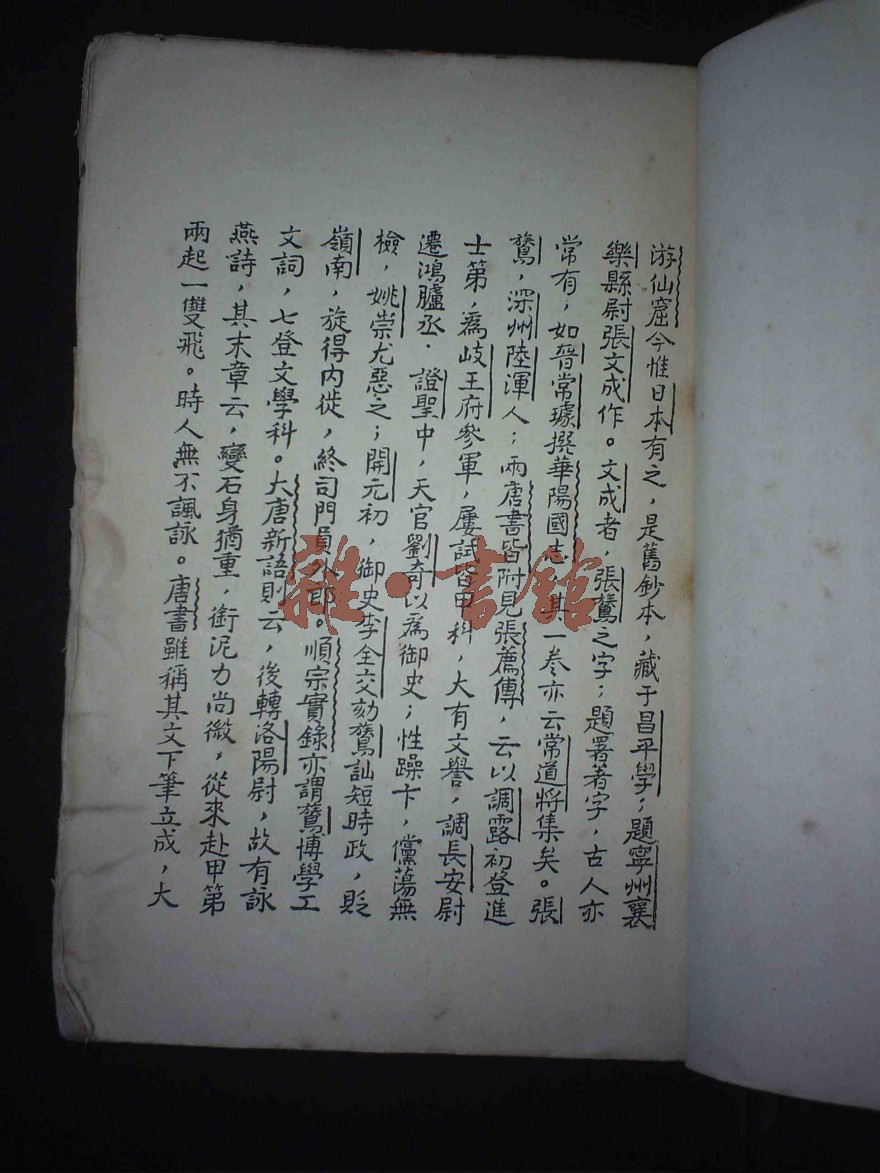 游仙窟今惟日本有之，是舊鈔本，藏于昌平學；題寧州襄
樂縣尉張文成作。文成者，張鷟之字；題署著字，古人亦
常有，如晉常璩撰華陽國志，其一卷亦云常道將集矣。張
鷟，深州陸渾人；兩唐書皆附見張薦傳，云以調露初登進
士第，爲岐王府參軍，屢試皆甲科，大有文譽，調長安尉
遷鴻臚丞．證聖中，天官劉奇以爲御史；性躁卞，儻蕩無
檢，姚崇尤惡之；開元初，御史李全交劾鷟訕短時政，貶
嶺南，旋得內徙，終司門員外郎。順宗實錄亦謂鷟博學工
文詞，七登文學科。大唐新語則云，後轉洛陽尉，故有詠
燕詩，其末章云，變石身猶重，銜泥力尚微，從來赴甲第
兩起一雙飛。時人無不諷詠。唐書雖稱其文下筆立成，大
雜·書館